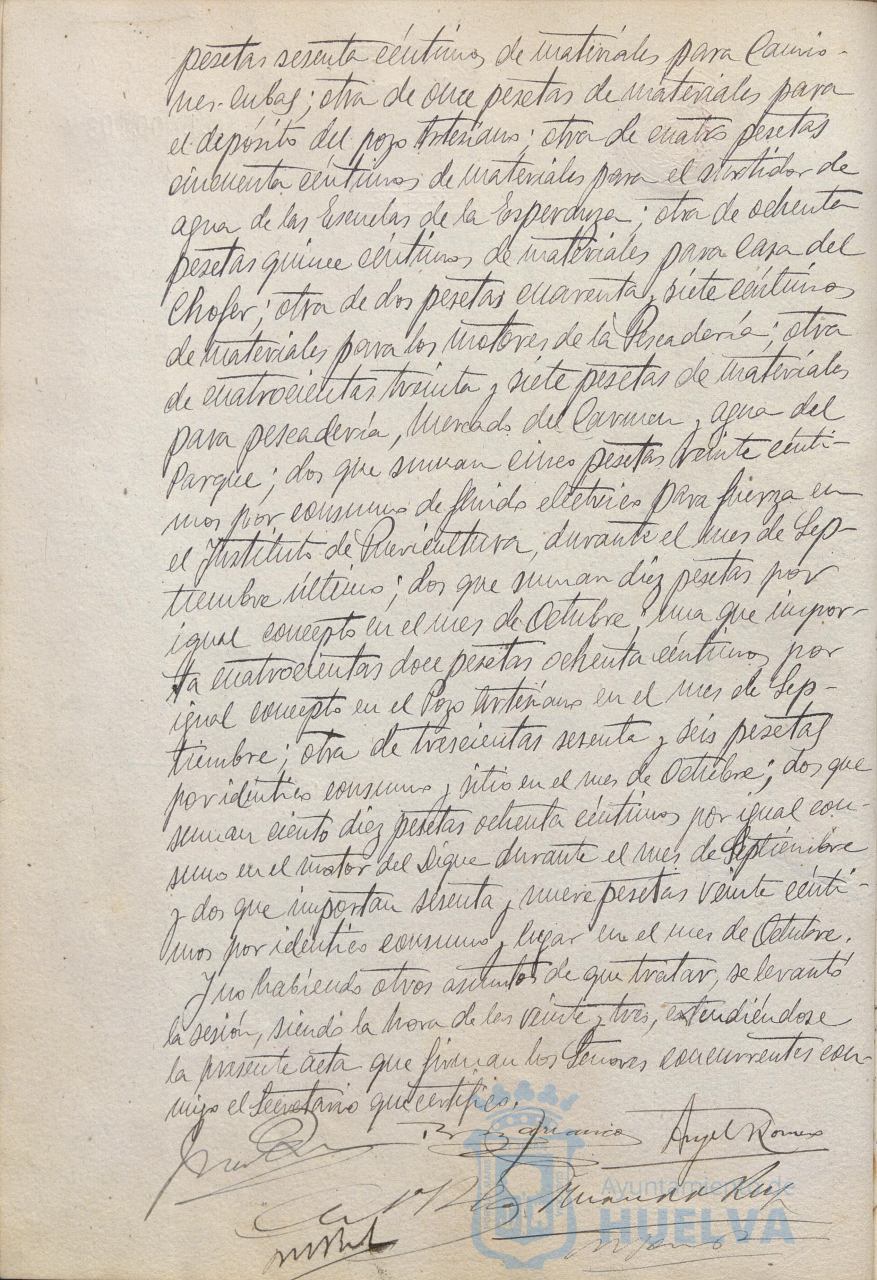 pesetas sesenta céntimos de materiales para Camio-
nes-cubas; otra de once pesetas de materiales para
el depósito del pozo Artesiano; otra de cuatro pesetas
cincuenta céntimos de materiales para el surtidor de
agua de las Escuelas de la Esperanza; otra de ochenta
pesetas quince céntimos de materiales para Casa del
Chofer; otra de dos pesetas cuarenta y siete céntimos
de materiales para los motores de la Pescadería; otra
de cuatrocientas treinta y siete pesetas de materiales
para pescadería, Mercado del Carmen y agua del
Parque; dos que suman cinco pesetas veinte cénti-
mos por consumo de fluido eléctrico para fuerza en
el Instituto de Puericultura, durante el mes de Sep-
tiembre último; dos que suman diez pesetas por
igual concepto en el mes de Octubre; una que impor-
ta cuatrocientas doce pesetas ochenta céntimos por
igual concepto en el Pozo Artesiano en el mes de Sep-
tiembre; otra de trescientas sesenta y seis pesetas
por idéntico consumo y sitio en el mes de Octubre; dos que
suman ciento diez pesetas ochenta céntimos por igual con-
sumo en el motor del Dique durante el mes de Septiembre
y dos que importan sesenta y nueve pesetas veinte cénti-
mos por idéntico consumo y lugar en el mes de Octubre.
Y no habiendo otros asuntos de que tratar, se levantó
la sesión, siendo la hora de las veinte y tres, extendiéndose
la presente acta que firman los Señores concurrentes con-
migo el Secretario que certifico.
Angel Romero
Ayuntamiento de
HUELVA